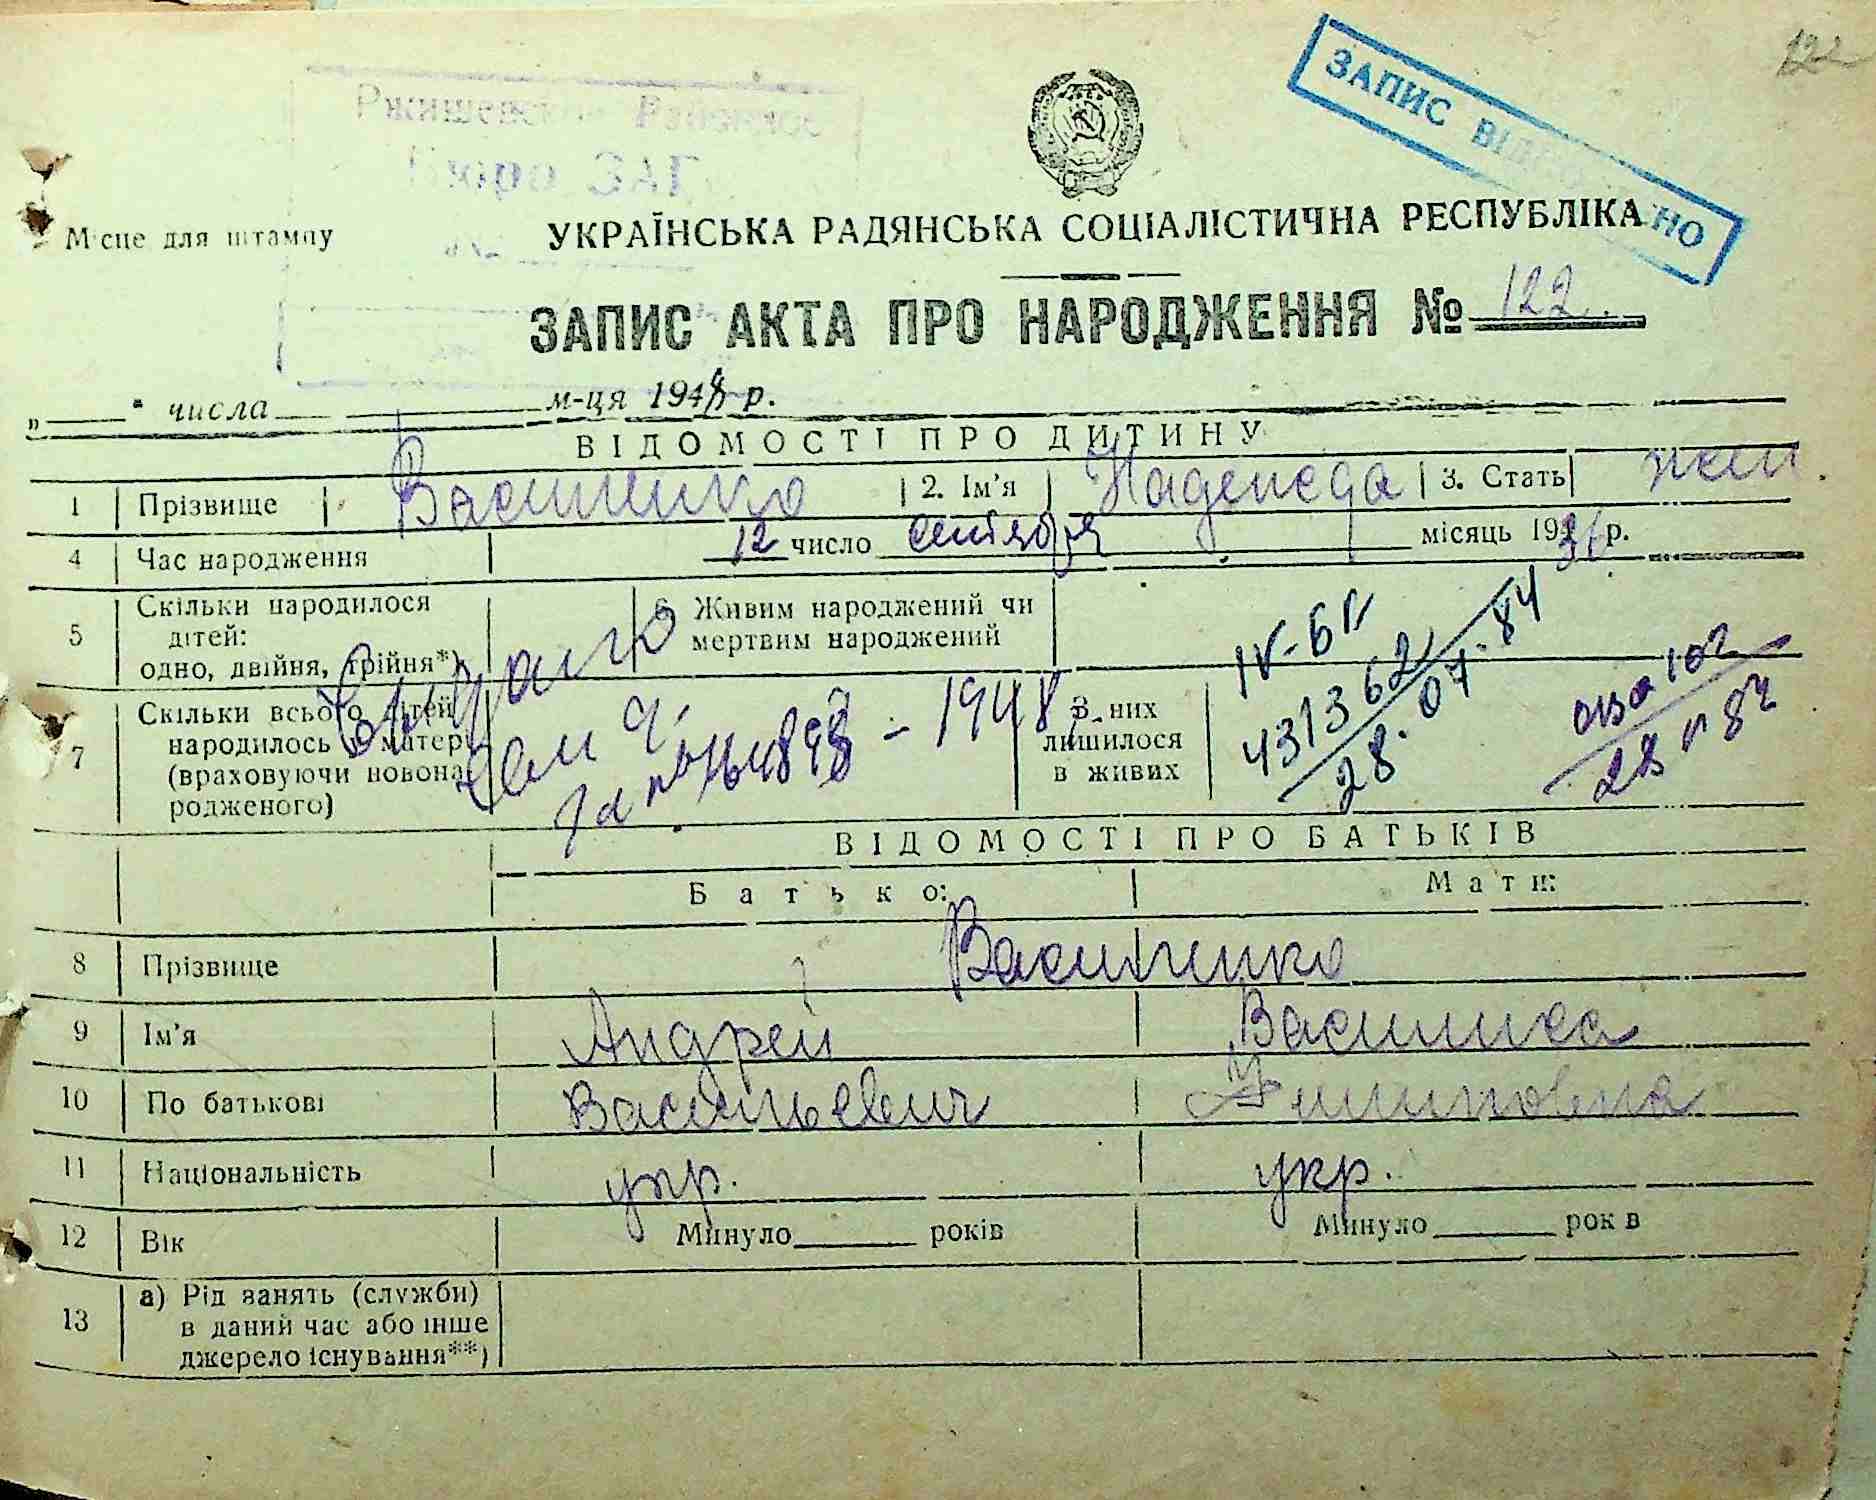 122
ЗАПИС ВІДНОВЛЕНО
Бюро ЗАГС
Місце для штампу
УКРАЇНСЬКА РАДЯНСЬКА СОЦІАЛІСТИЧНА РЕСПУБЛІКА
ЗАПИС АКТА ПРО НАРОДЖЕННЯ № 122
„ “ числа м-ця 1948 р.
ВІДОМОСТІ ПРО ДИТИНУ
1 Прізвище Василенко 2. Ім'я Надежда 3. Стать жен.
4 Час народження 12 число сентября місяць 1936 р.
5 Скільки народилося дітей: одно, двійня, трійня*) 6 Живим народжений чи мертвим народжений
IV-БК 431362
28.07.84
7 Скільки всього дітей народилось у матері (враховуючи новонародженого) З них лишилося в живих
1948
ВІДОМОСТІ ПРО БАТЬКІВ
Батько: Мати:
8 Прізвище Василенко
9 Ім'я Андрей Василиса
10 По батькові Васильевич
11 Національність укр. укр.
12 Вік Минуло років Минуло років
13 а) Рід занять (служби) в даний час або інше джерело існування**)